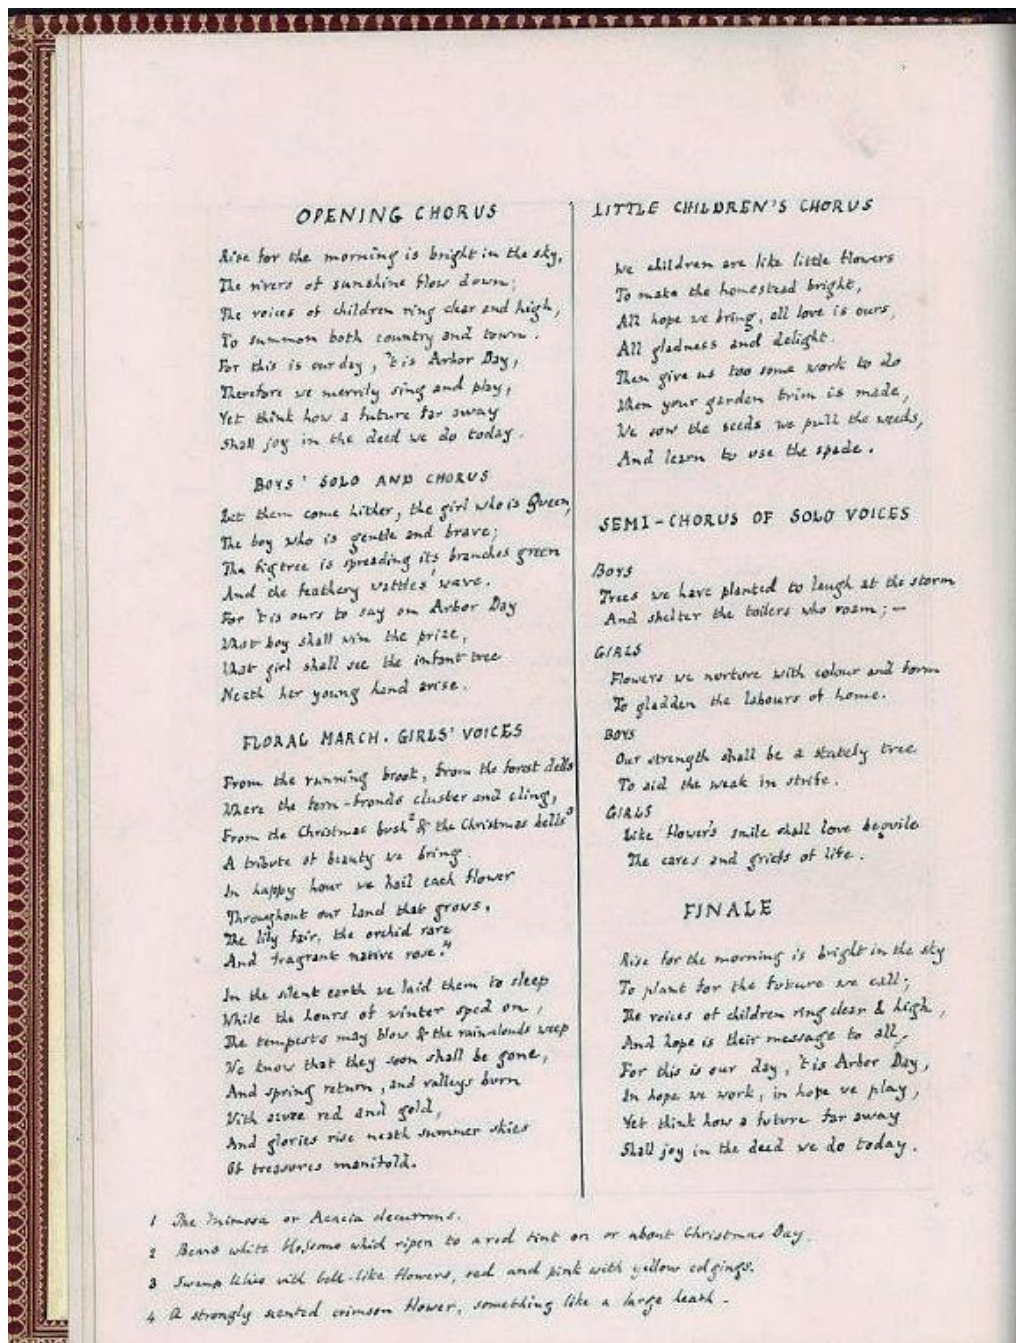 OPENING CHORUS
Rise for the morning is bright in the sky,
The rivers of sunshine flow down;
The voices of children ring clear and high,
To summon both country and town.
For this is our day, 't is Arbor Day,
Therefore we merrily sing and play,
Yet think how a future far away
Shall joy in the deed we do today.
BOYS' SOLO AND CHORUS
Let them come hither, the girl who is Queen,
The boy who is gentle and brave;
The figtree is spreading its branches green
And the feathery wattles¹ wave.
For 't is ours to say on Arbor Day
What boy shall win the prize,
What girl shall see the infant tree
Neath her young hand arise.
FLORAL MARCH. GIRLS' VOICES
From the running brook, from the forest dells
Where the fern-fronds cluster and cling,
From the Christmas bush² & the Christmas bells³
A tribute of beauty we bring.
In happy hour we hail each flower
Throughout our land that grows,
The lily fair, the orchid rare
And fragrant native rose.⁴
In the silent earth we laid them to sleep
While the hours of winter sped on,
The tempests may blow & the rain-clouds weep
We know that they soon shall be gone,
And spring return, and valleys burn
With azure red and gold,
And glories rise neath summer skies
Of treasures manifold.
LITTLE CHILDREN'S CHORUS
We children are like little flowers
To make the homestead bright,
All hope we bring, all love is ours,
All gladness and delight.
Then give us too some work to do
When your garden trim is made,
We sow the seeds we pull the weeds,
And learn to use the spade.
SEMI-CHORUS OF SOLO VOICES
BOYS
Trees we have planted to laugh at the storm
And shelter the toilers who roam; —
GIRLS
Flowers we nurture with colour and form
To gladden the labours of home.
BOYS
Our strength shall be a stately tree
To aid the weak in strife.
GIRLS
Like flower's smile shall love beguile
The cares and griefs of life.
FINALE
Rise for the morning is bright in the sky
To plant for the future we call;
The voices of children ring clear & high,
And hope is their message to all,
For this is our day, 't is Arbor Day,
In hope we work, in hope we play,
Yet think how a future far away
Shall joy in the deed we do today.
1 The Mimosa or Acacia decurrens.
2 Bears white blossoms which ripen to a red tint on or about Christmas Day.
3 Swamp lilies with bell-like flowers, red and pink with yellow edgings.
4 A strongly scented crimson flower, something like a large heath.